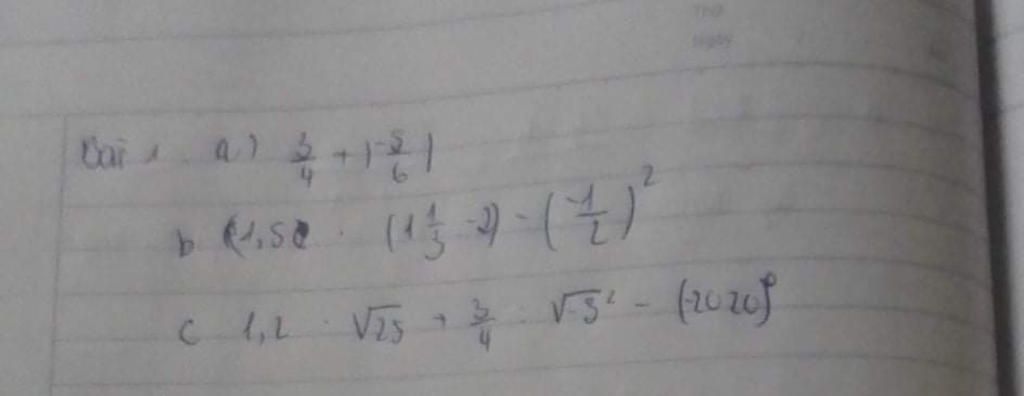 Bài 1. a) 3/4 + |-5/6|
b 1,5 . (1 1/3 - 2) - (-1/2)²
c 1,2 . √25 + 3/4 : √-3² - (-2020)⁰